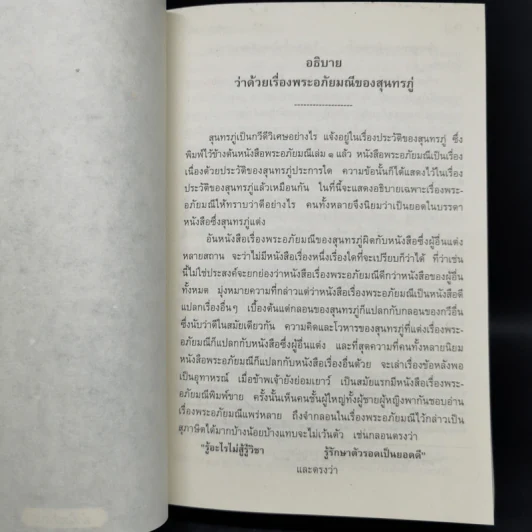 อธิบาย
ว่าด้วยเรื่องพระอภัยมณีของสุนทรภู่
-------------------
สุนทรภู่เป็นกวีดีวิเศษอย่างไร แจ้งอยู่ในเรื่องประวัติของสุนทรภู่ ซึ่ง
พิมพ์ไว้ข้างต้นหนังสือพระอภัยมณีเล่ม ๑ แล้ว หนังสือพระอภัยมณีเป็นเรื่อง
เนื่องด้วยประวัติของสุนทรภู่ประการใด ความข้อนั้นก็ได้แสดงไว้ในเรื่อง
ประวัติของสุนทรภู่แล้วเหมือนกัน ในที่นี้จะแสดงอธิบายเฉพาะเรื่องพระ-
อภัยมณีให้ทราบว่าดีอย่างไร คนทั้งหลายจึงนิยมว่าเป็นยอดในบรรดา
หนังสือซึ่งสุนทรภู่แต่ง
อันหนังสือเรื่องพระอภัยมณีของสุนทรภู่ผิดกับหนังสือซึ่งผู้อื่นแต่ง
หลายสถาน จะว่าไม่มีหนังสือเรื่องหนึ่งเรื่องใดที่จะเปรียบก็ว่าได้ ที่ว่าเช่น
นี้ไม่ใช่ประสงค์จะยกย่องว่าหนังสือเรื่องพระอภัยมณีดีกว่าหนังสือของผู้อื่น
ทั้งหมด มุ่งหมายความที่กล่าวแต่ว่าหนังสือเรื่องพระอภัยมณีเป็นหนังสือดี
แปลกเรื่องอื่นๆ เบื้องต้นแต่กลอนของสุนทรภู่ก็แปลกกับกลอนของกวีอื่น
ซึ่งนับว่าดีในสมัยเดียวกัน ความคิดและโวหารของสุนทรภู่ที่แต่งเรื่องพระ-
อภัยมณีก็แปลกกับหนังสือซึ่งผู้อื่นแต่ง และที่สุดความที่คนทั้งหลายนิยม
หนังสือพระอภัยมณีก็แปลกกับหนังสือเรื่องอื่นด้วย จะเล่าเรื่องข้อหลังพอ
เป็นอุทาหรณ์ เมื่อข้าพเจ้ายังย่อมเยาว์ เป็นสมัยแรกมีหนังสือเรื่องพระ-
อภัยมณีพิมพ์ขาย ครั้งนั้นเห็นคนชั้นผู้ใหญ่ทั้งผู้ชายผู้หญิงพากันชอบอ่าน
เรื่องพระอภัยมณีแพร่หลาย ถึงจำกลอนในเรื่องพระอภัยมณีไว้กล่าวเป็น
สุภาษิตได้มากบ้างน้อยบ้างแทบจะไม่เว้นตัว เช่นกลอนตรงว่า
"รู้อะไรไม่สู้รู้วิชา รู้รักษาตัวรอดเป็นยอดดี"
และตรงว่า